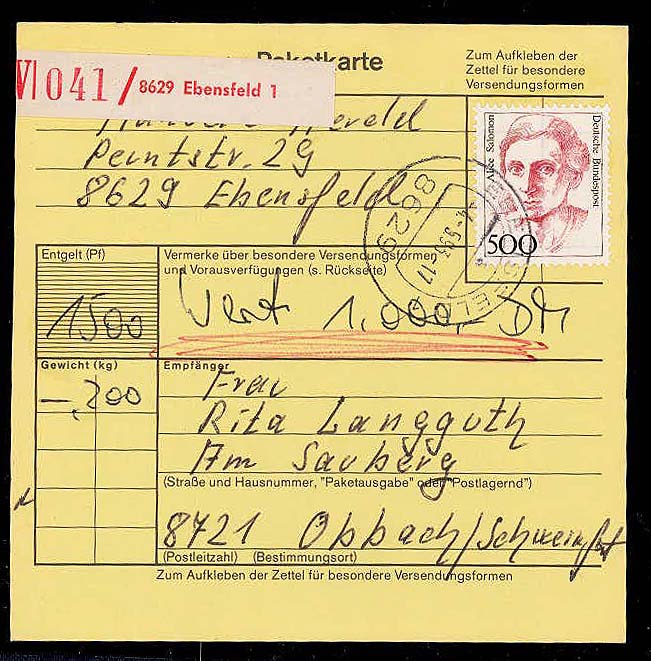 Paketkarte
Zum Aufkleben der
Zettel für besondere
Versendungsformen
V 041 / 8629 Ebensfeld 1
8629 Ebensfeld
Alice Salomon
Deutsche Bundespost
500
8629
Entgelt (Pf)
1500
Vermerke über besondere Versendungsformen
und Vorausverfügungen (s. Rückseite)
Wert 1.000,- DM
Gewicht (kg)
-,200
Empfänger
Frau
Rita Langguth
Am Sauberg
(Straße und Hausnummer, "Paketausgabe" oder "Postlagernd")
8721 Obbach/Schweinfurt
(Postleitzahl) (Bestimmungsort)
Zum Aufkleben der Zettel für besondere Versendungsformen